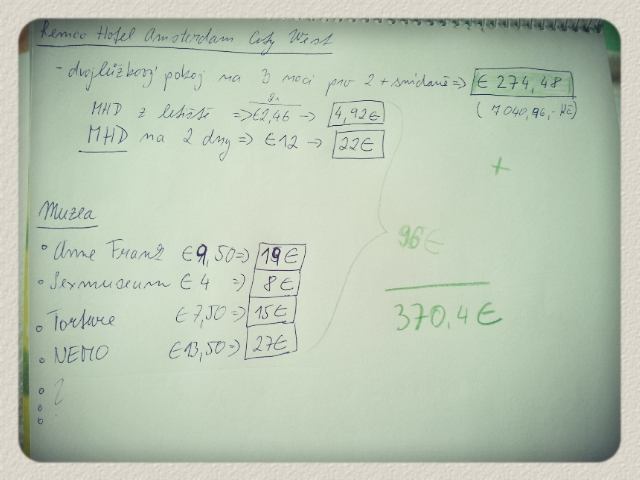 Remco Hotel Amsterdam City West
- dvojlůžkový pokoj na 3 noci pro 2 + snídaně => € 274,48
(7040,96,- Kč)
MHD z letiště => €2,46 -> 4,92€
MHD na 2 dny => €12 -> 22€
+
Muzea
96€
• Anne Frank €9,50 => 19€
• Sexmuseum €4 => 8€
370,4€
• Torture €7,50 => 15€
• NEMO €13,50 => 27€
• ?